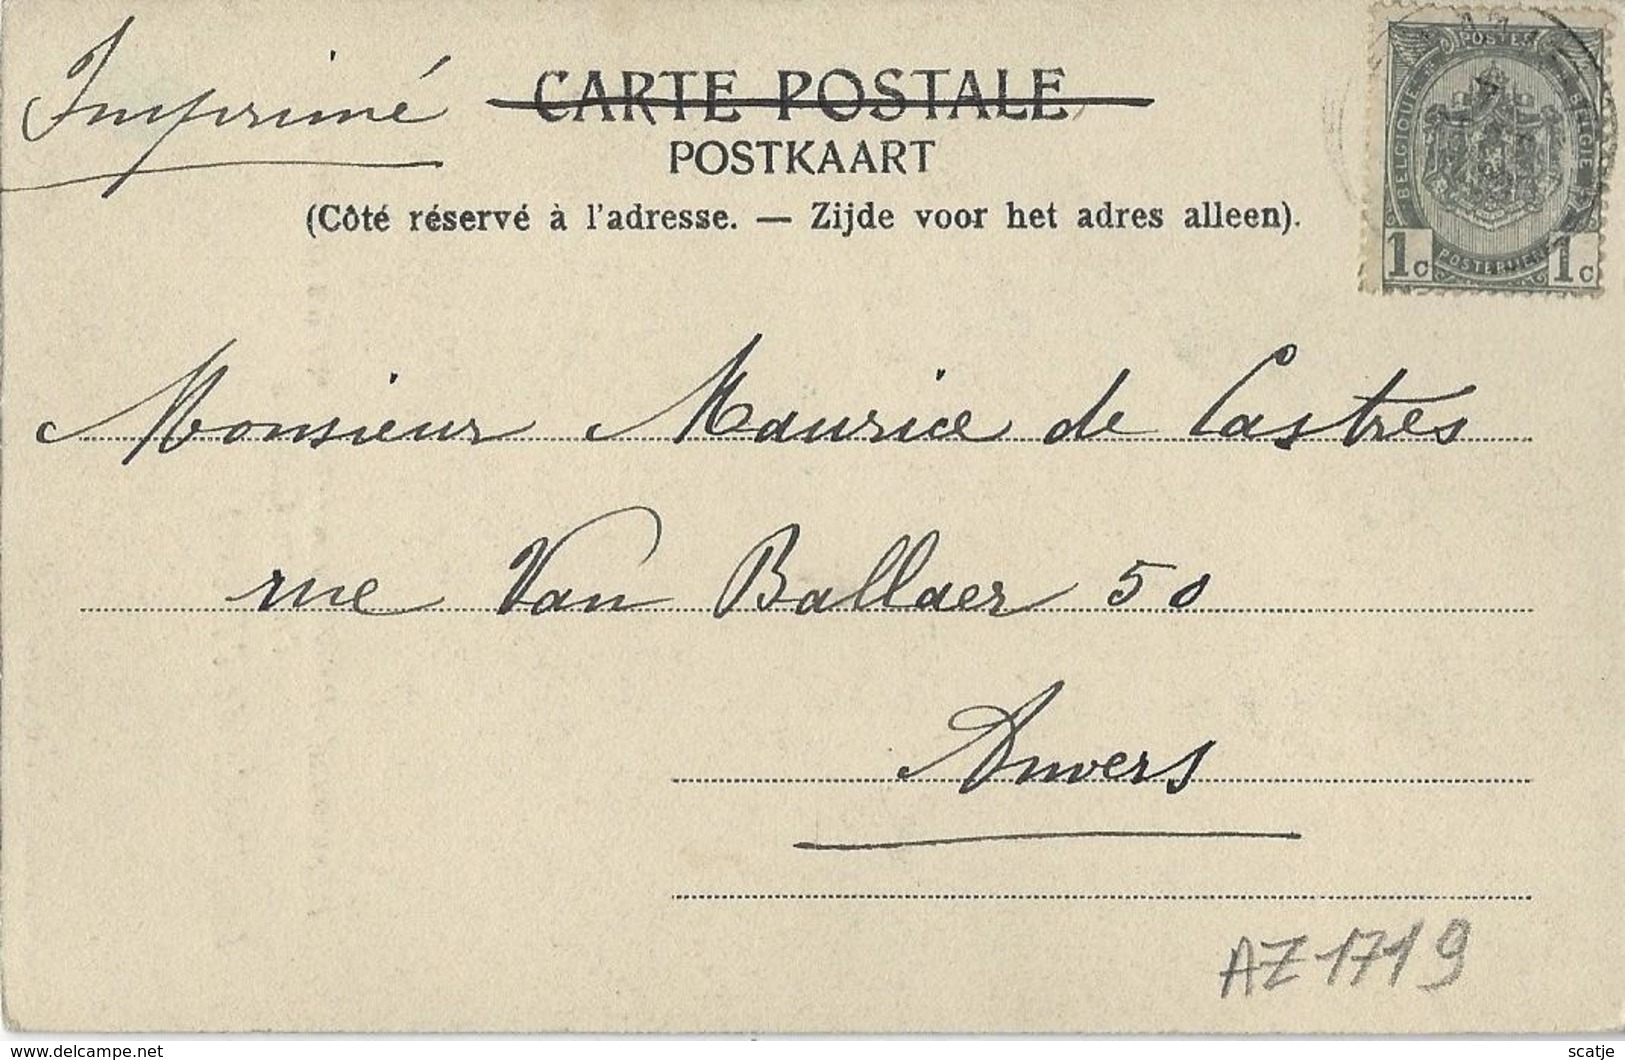 Imprimé
CARTE POSTALE
POSTKAART
(Côté réservé à l'adresse. — Zijde voor het adres alleen).
POSTES
BELGIQUE
BELGIE
POSTERIJEN
1c 1c
Monsieur Maurice de Castres
rue Van Ballaer 50
Anvers
AZ1719
www.delcampe.net
scatje